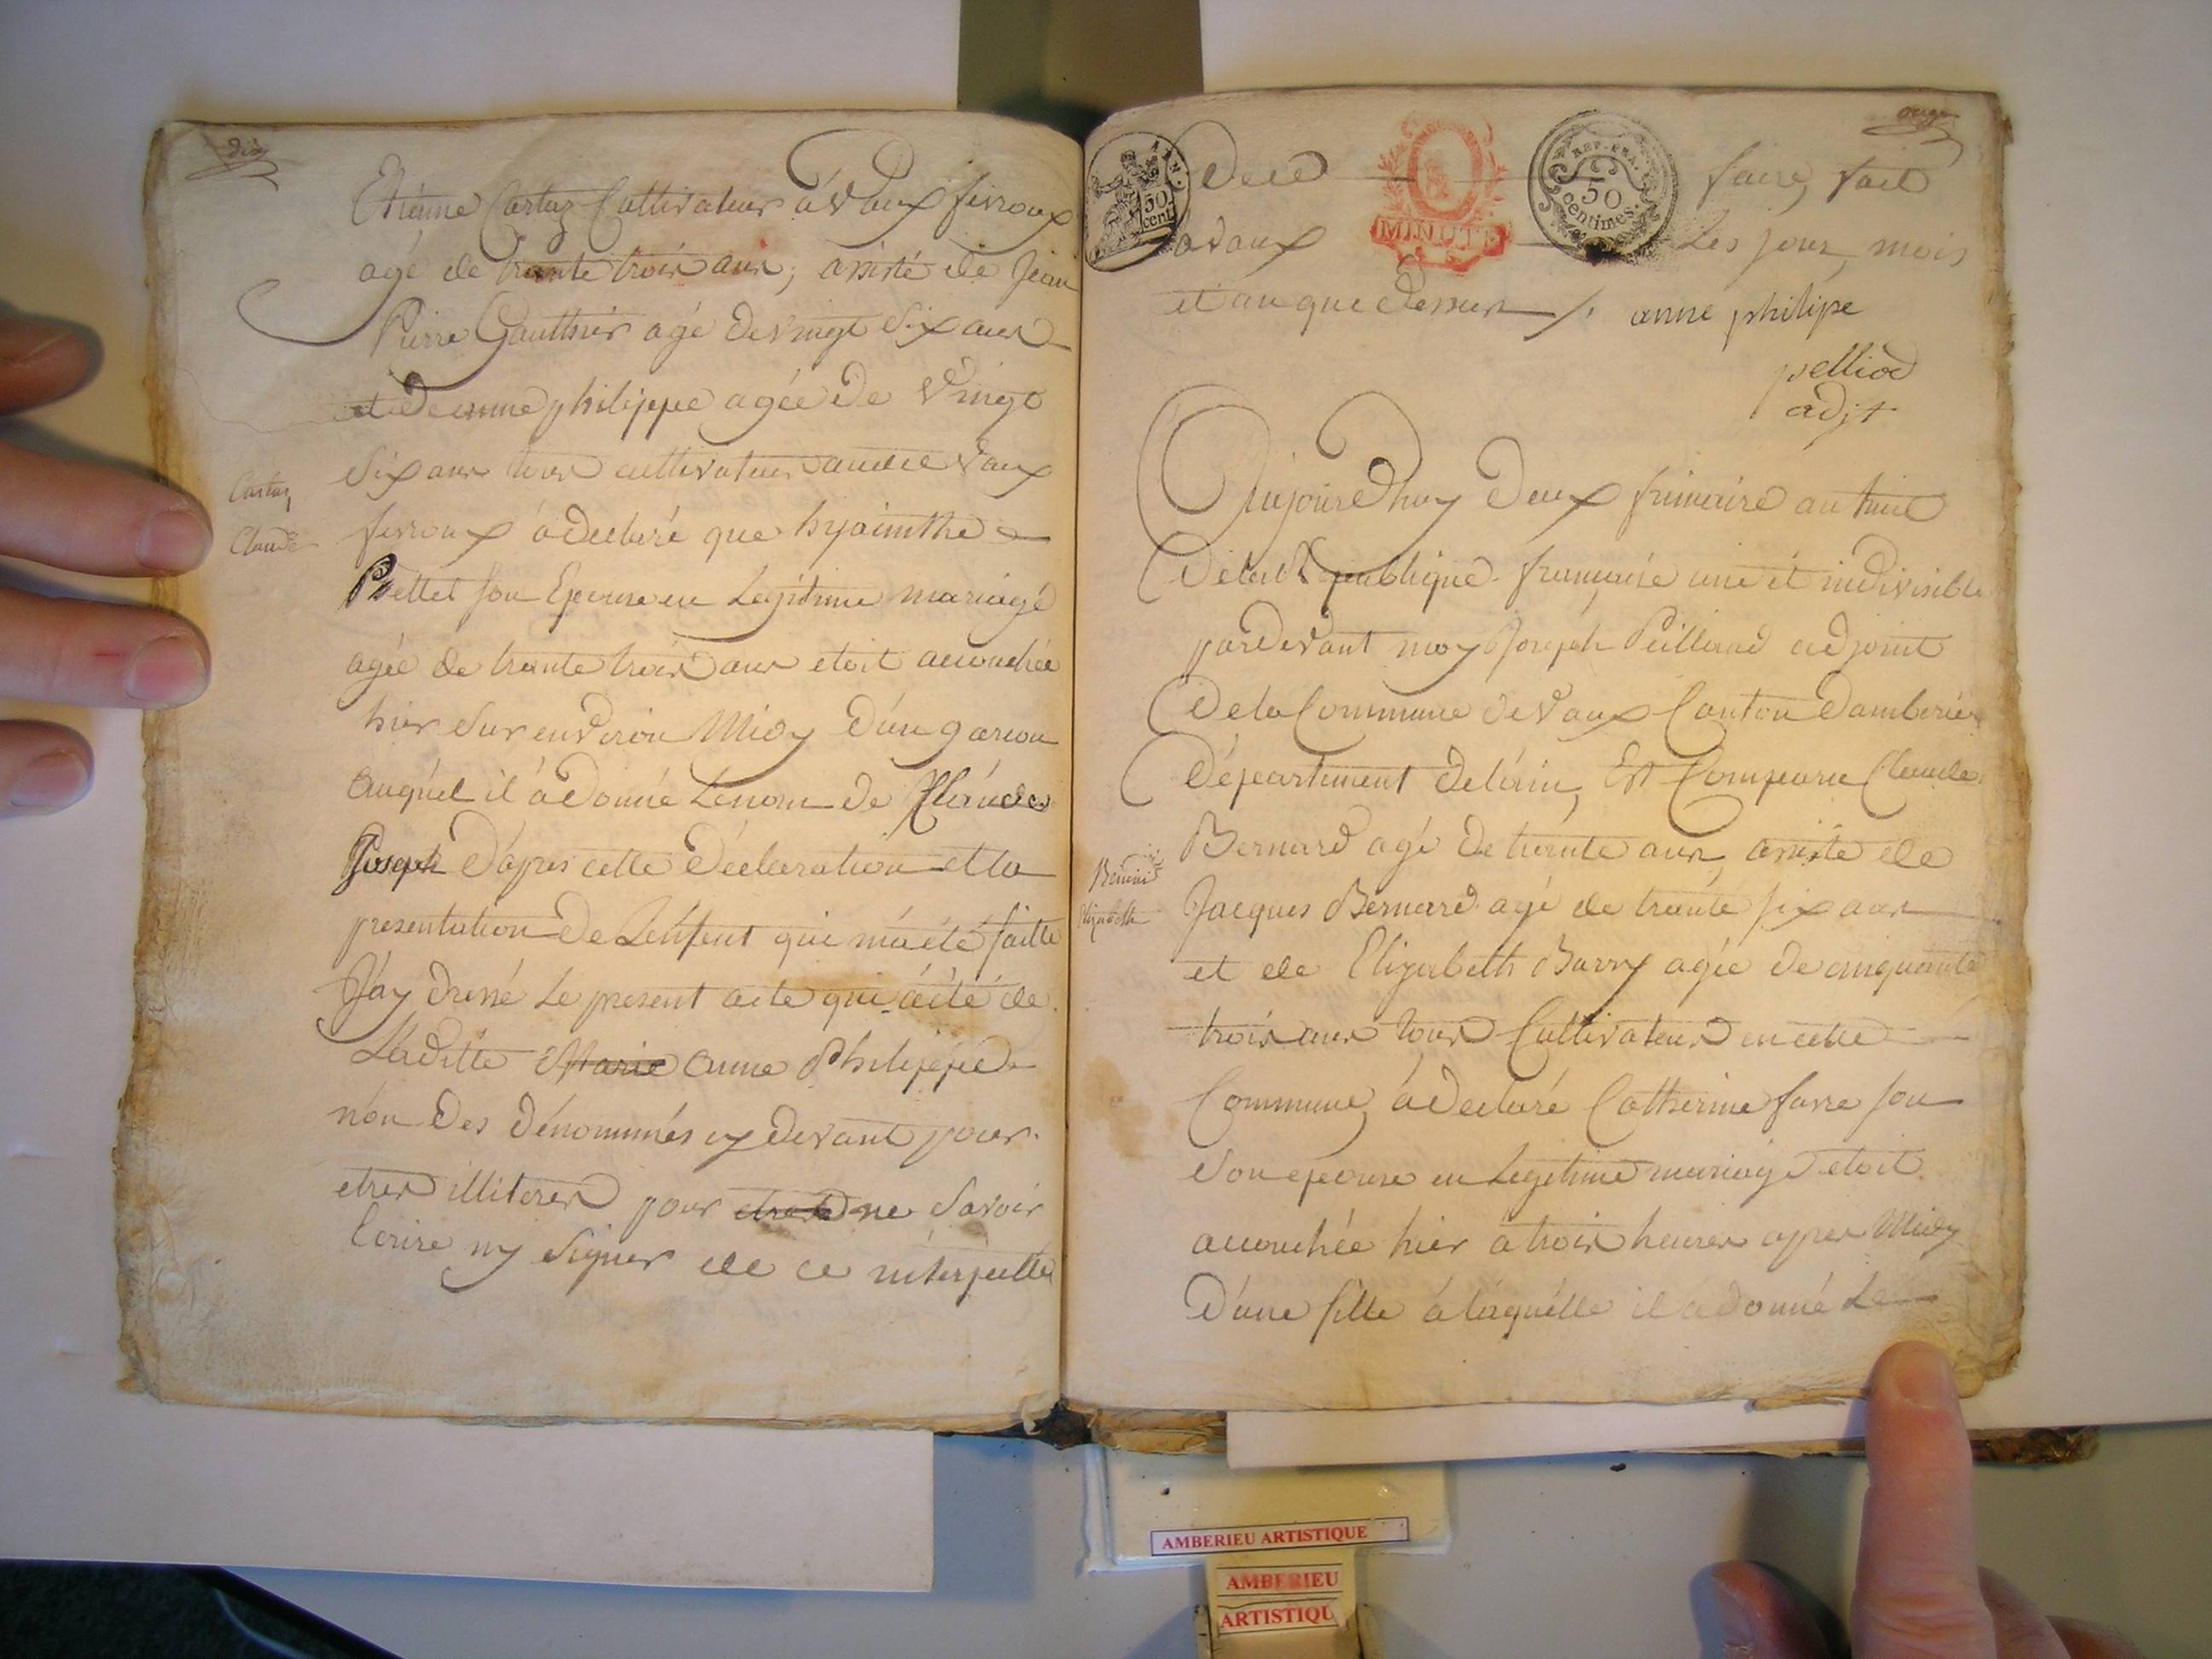 dix
Etiéne Cartaz Cultivateur á Vaux fevroux
agé de trante trois ans, assisté de Jean
Pierre Gauthier agé de vingt Six ans
et de anne philippe agée de vingt
Six ans tous cultivateurs audit Vaux
Cartaz
Claude
fevroux á declaré que hyainthe
Prettet son Epouse en Legitime mariage
agée de trante trois ans etoit acouchée
hier Sur environ Midy d'un garson
auquel il á donné Lenom de Claude
Joseph d'apres cette Déclaration et la
presentation de L'enfent qui m'aété faitte
J'ay dressé Le present acte qui áété de
Laditte Marie anne Philippe
n'on des dénommés cy devant pour
etres illiteres pour etres ne Savoir
Ecrire ny Signer de ce interpellé
onze
de ce faire, fait
50 cent
MINUTE
REP. FRA. 50 centimes.
á Vaux Les jour, mois
et an que dessus /. anne philipe
pelliod
adjt
Aujourd'huy deux frimaire an huit
de la Republique française une et indivisible
pardevant moy Joseph Peilliod adjoint
de la Commune de Vaux Canton d'amberieu
Département de l'ain, Est Comparu Claude
Bernard agé de trante ans, assisté de
Bernard
Elizabeth
Jacques Bernard agé de trante six ans
et de Elizabeth Barry agée de cinquante
trois ans tous Cultivateurs en cette
Commune, á declaré Catherine favre son
Son epouse en Legitime mariage etoit
acouchée hier a trois heures apres Midy
D'une fille á láquélle il a donné Le
AMBERIEU ARTISTIQUE
AMBERIEU
ARTISTIQU